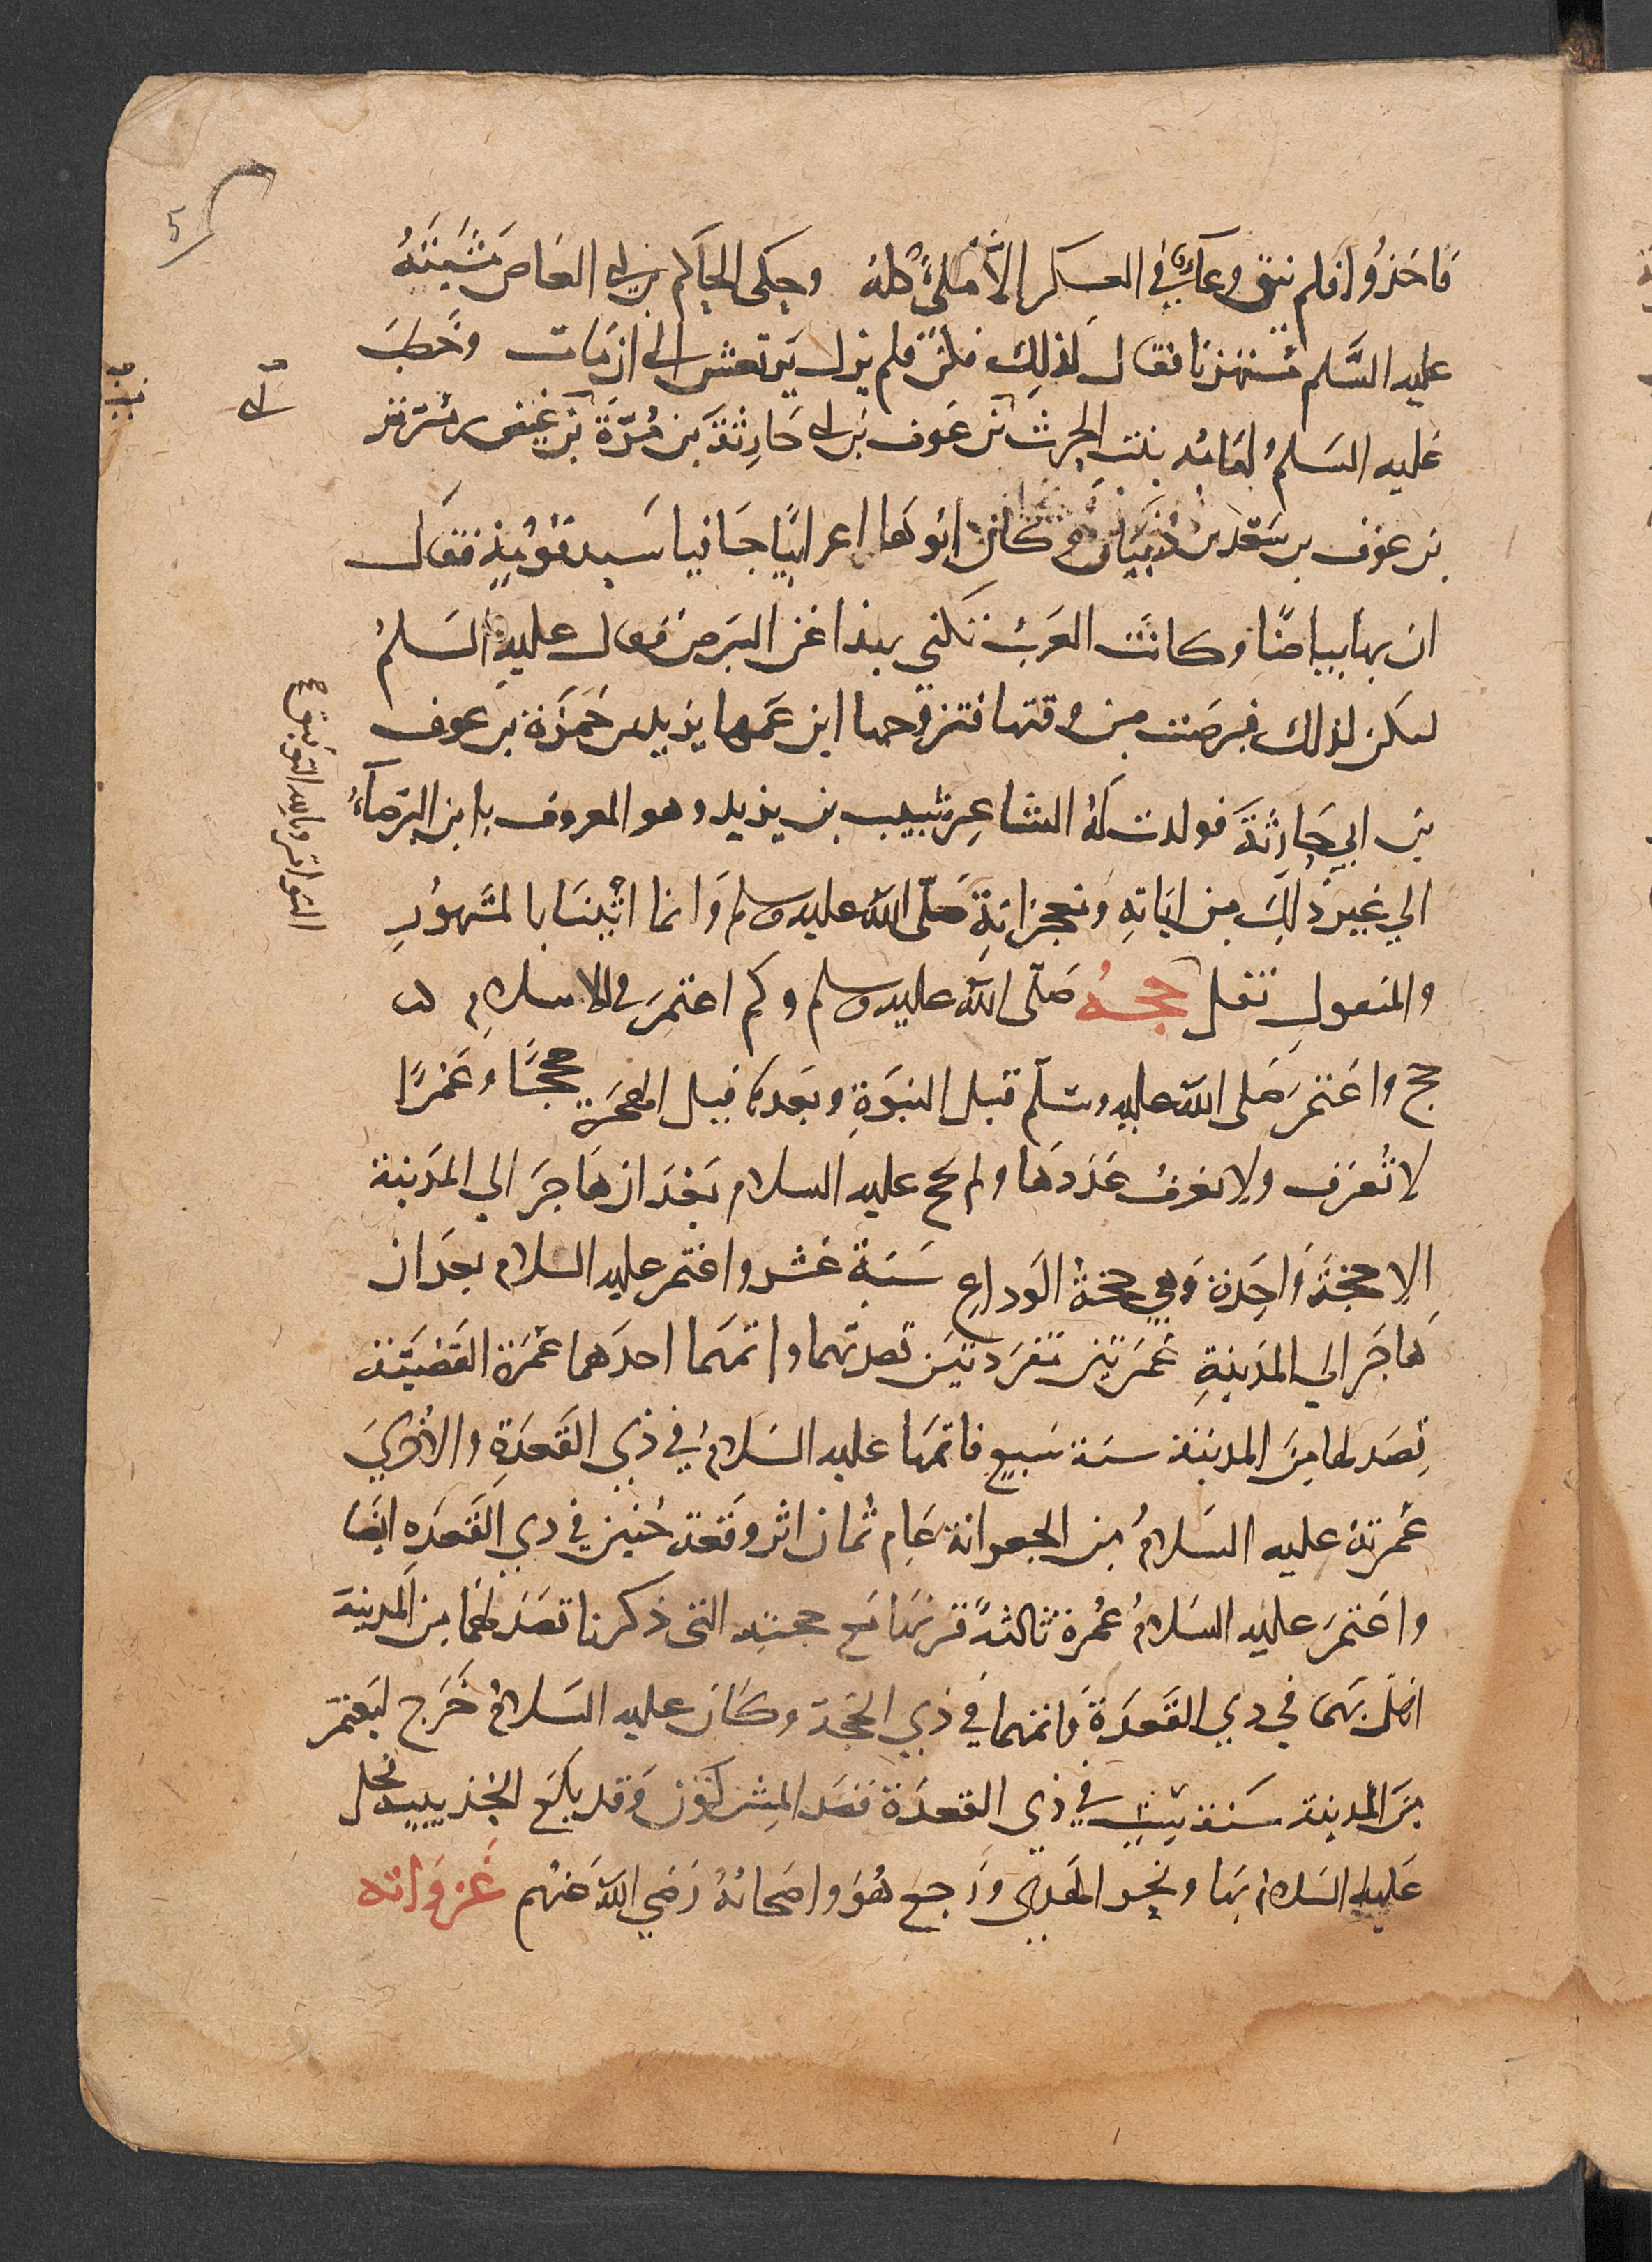 5
فاخذوا فلم يبق وعآء في العسكر الا ملئ كله وحكى الحاكم بن ابي العاص مشيته
عليه السَّلم مستهزئا فقال كذلك فكن فلم يزل يرتعش الى ان مات وخطب
عليه السلم امامه بنت الحرث بن عوف بن ابي حارثة بن مُرّة بن
بن عوف بن سعد بن ذبيان وكان ابوها اعرابيًا جافيا سيد قومه فقال
ان بها بياضًا وكانت العرب تكني بهذا عن البرص فقال عليه السلم
لتكن كذلك فبرصت من وقتها فتزوجها ابن عمها يزيد بن حمزة بن عوف
بن ابي حارثة فولدت له الشاعر شبيب بن يزيد وهو المعروف بابن البرصآء
الي غير ذلك من اياته ومعجزاته صلّى الله عليه وسلم وانما اتينا بالمشهور
والمنقول نقل حجه صلّى الله عليه وسلم وكم اعتمر في الاسلام
حج واعتمر صلى الله عليه وسلم قبل النبوة وبعدها قبل الهجرة حججًا وعمرًا
لا تُعرف ولا يعرف عددها ولم يحج عليه السلام بعد ان هاجر الي المدينة
الا حجة واحدة وهي حجة الوداع سنة عشر واعتمر عليه السلام بعد ان
هاجر الي المدينة عمرتين مفردتين قصدهما واتمهما احدهما عمرة القضية
قصد لها من المدينة سنة سبع فاتمها عليه السلام في ذي القعدة والاخري
عمرته عليه السلامُ من الجعرانة عام ثمان اثر وقعة حنين في ذي القعده ايضا
واعتمر عليه السلامُ عُمرة ثالثة قرنها مع حجته التى ذكرنا قصد لهما من المدينة
اهلّ بهما في ذي القعدة واتمهما في ذي الحجة وكان عليه السلام خرج ليعتمر
من المدينة سنة ست في ذي القعدة فصد المشركون وقد بلغ الحديبية فحل
عليه السلام بها ونحر الهدي ورجع هُوَ واصحابه رضي الله عنهم غزواته